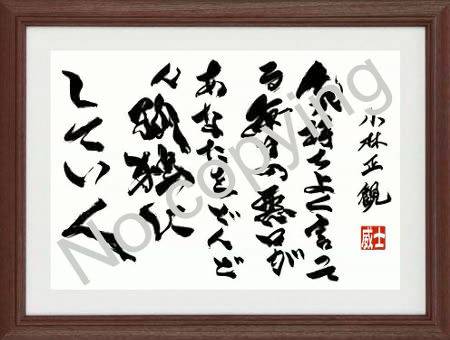 小林正観
気持ちよく言って
る毎日の悪口が
あなたをどんど
ん孤独に
していく
威士
No copying